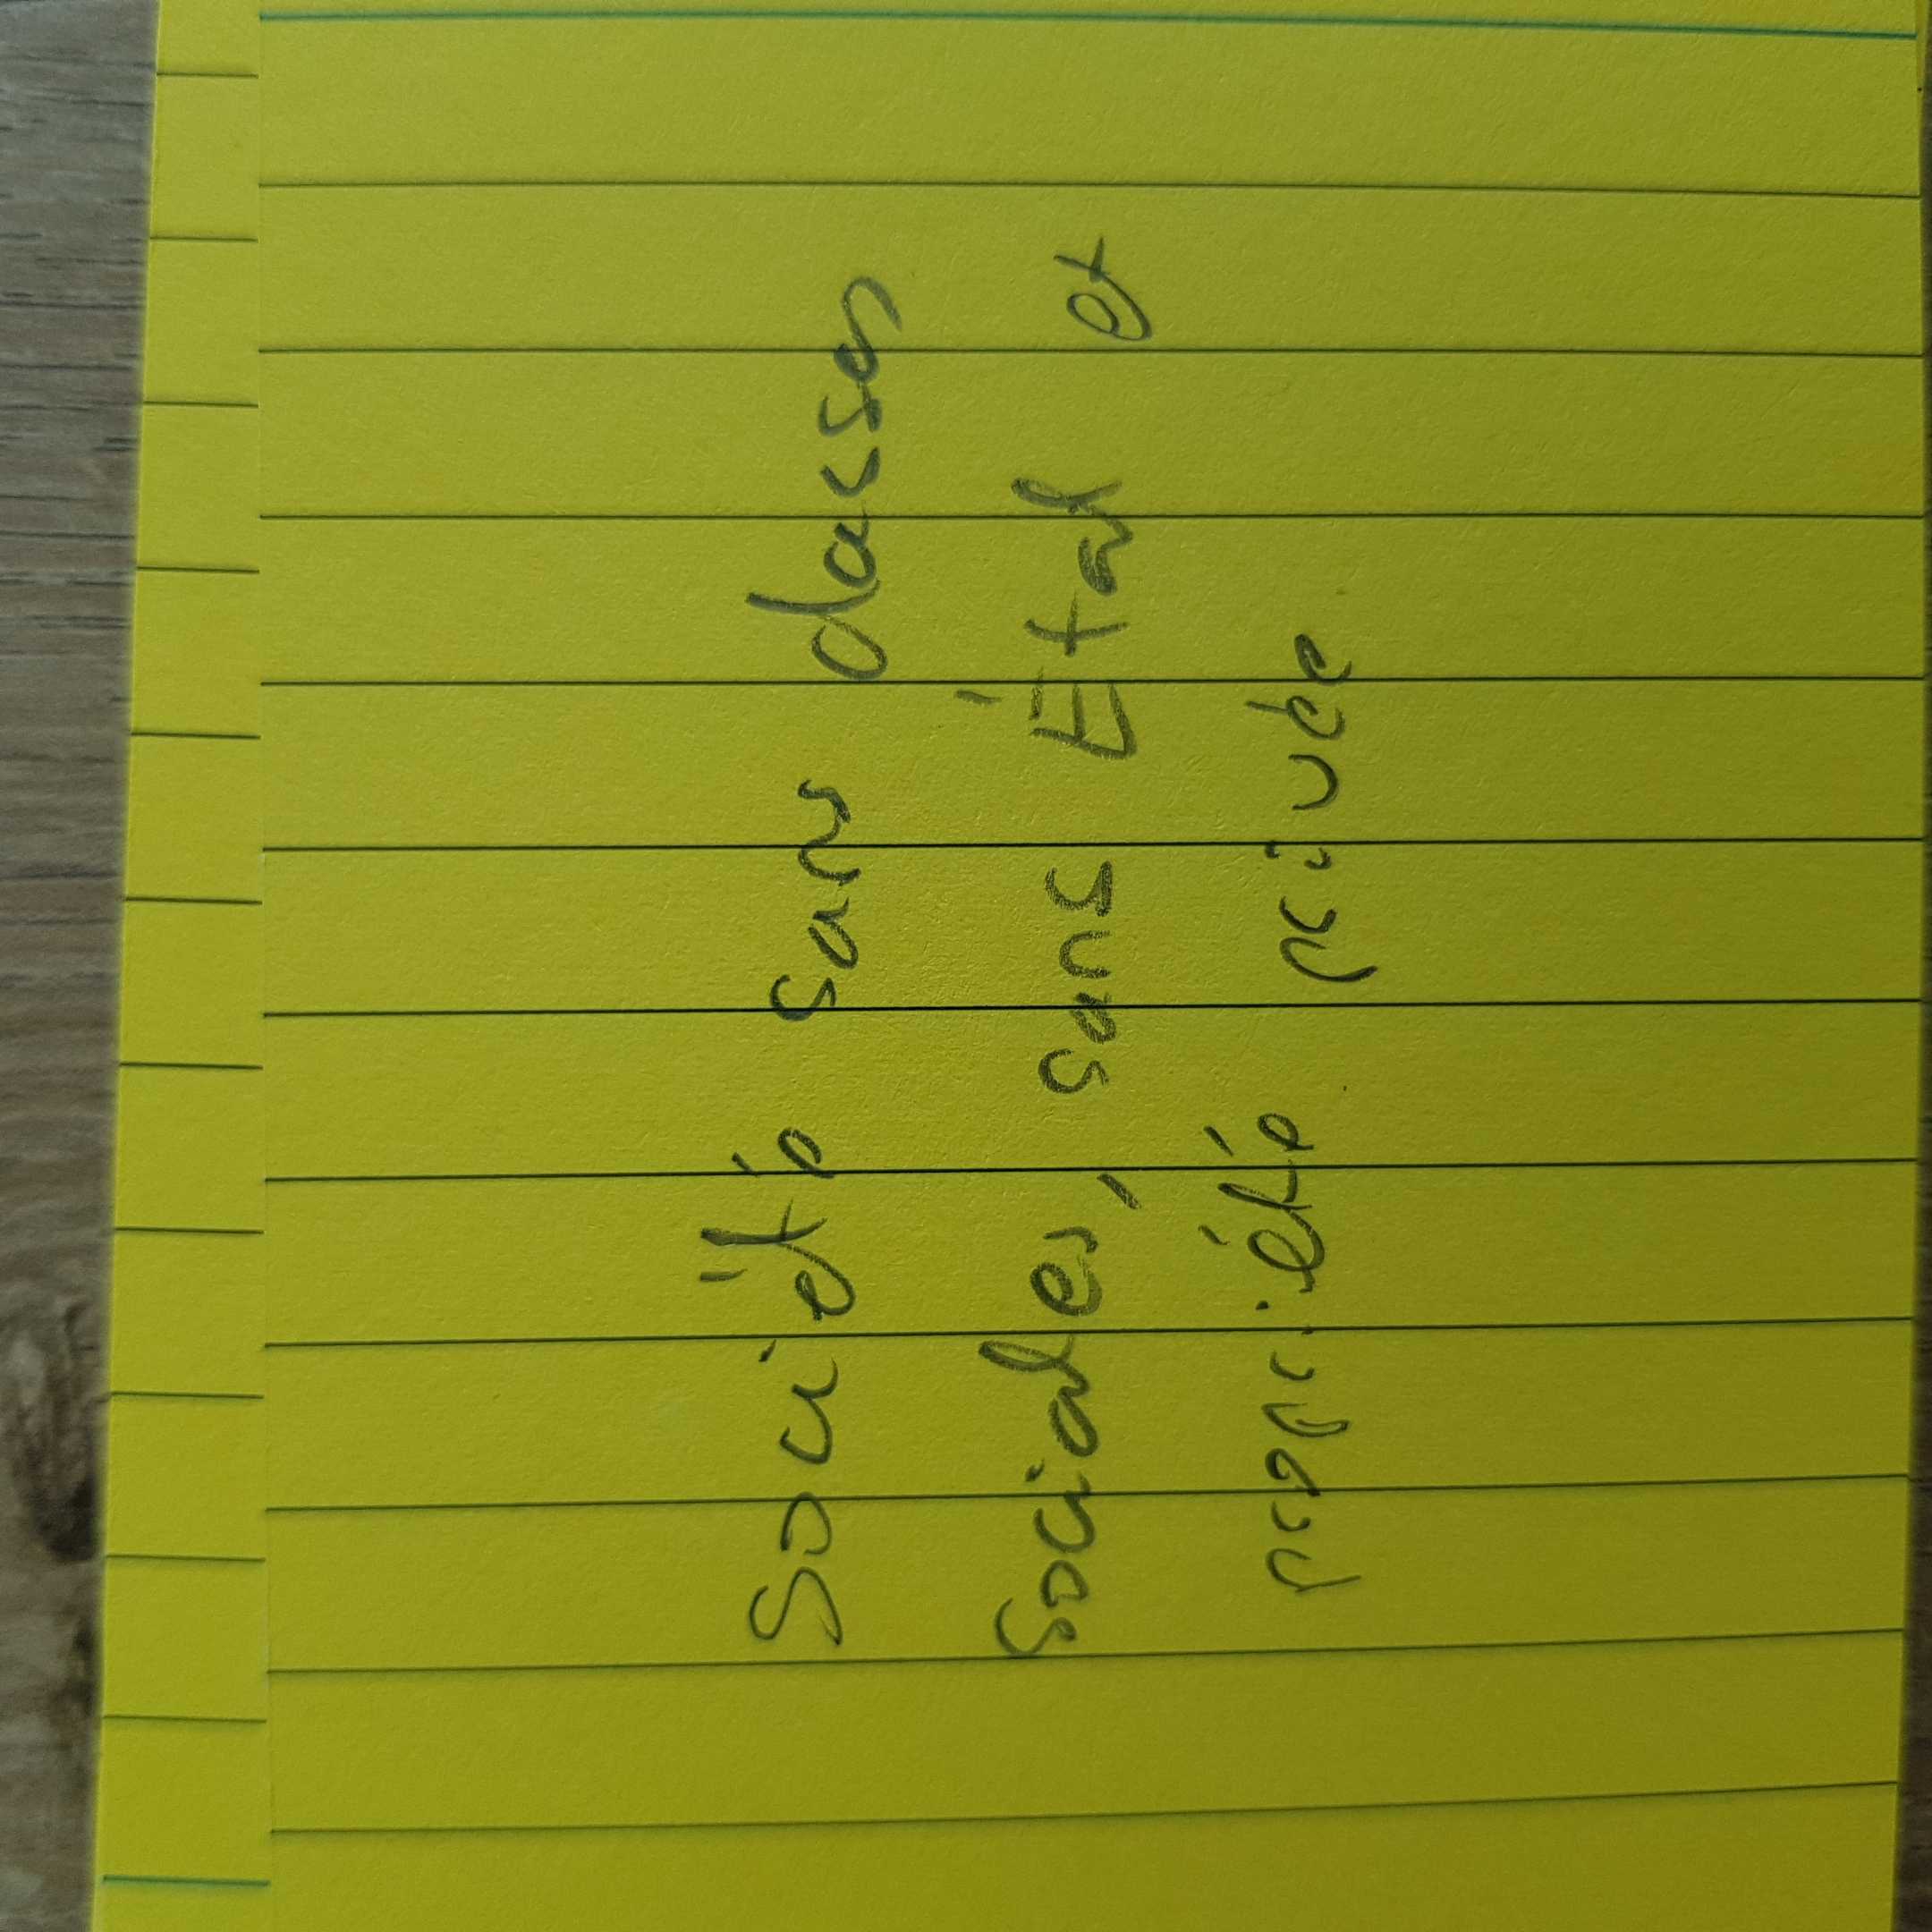 Société sans classes
sociales, sans État et
propriété privée